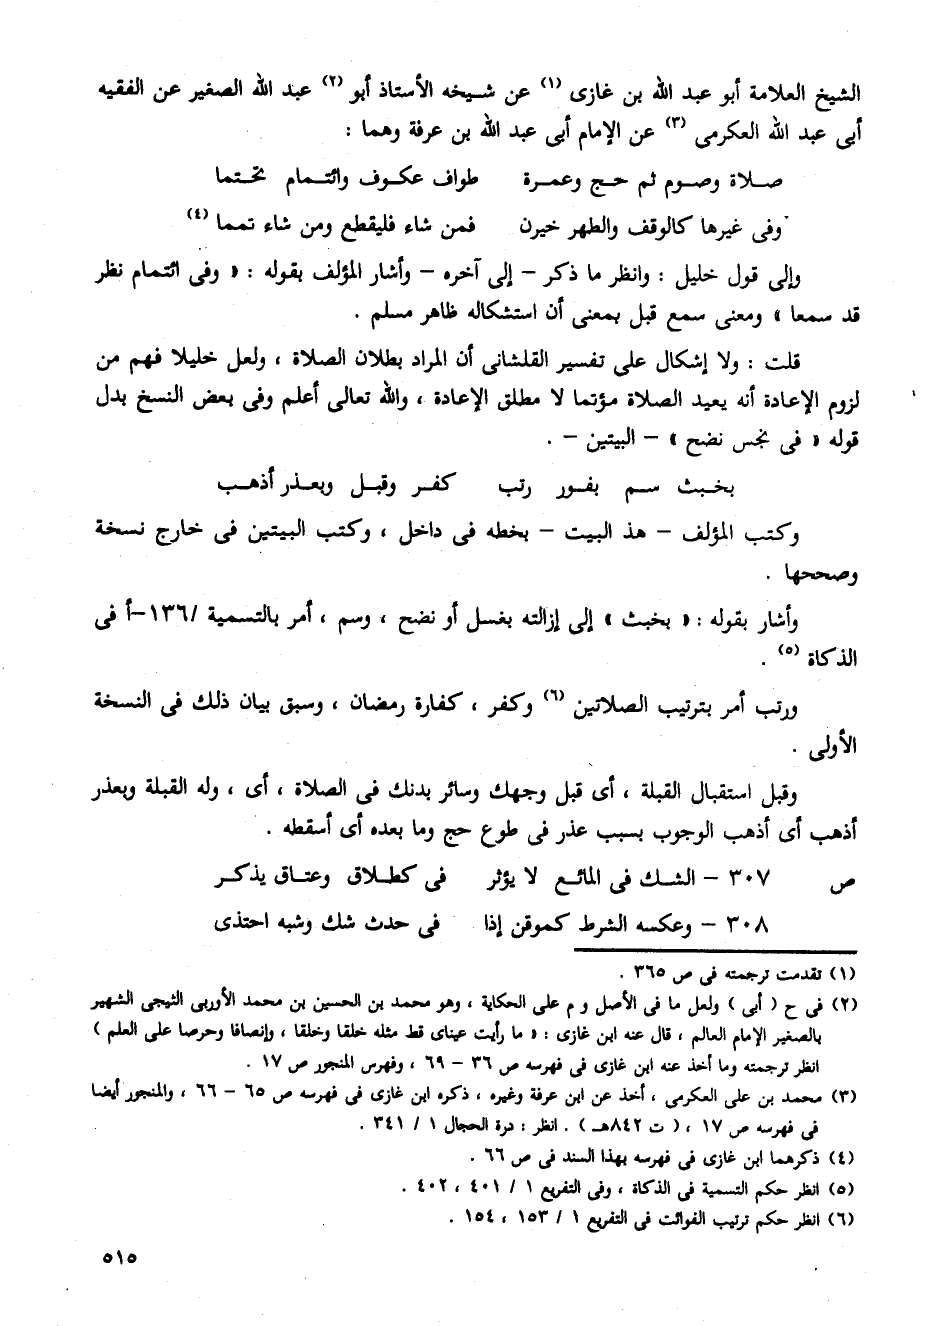 الشيخ العلامة أبو عبد الله بن غازى (١) عن شيخه الأستاذ أبو (٢) عبد الله الصغير عن الفقيه
أبى عبد الله العكرمى (٣) عن الإمام أبى عبد الله بن عرفة وهما :
صلاة وصوم ثم حج وعمرة طواف عكوف وائتمام تحتما
وفى غيرها كالوقف والطهر خيرن فمن شاء فليقطع ومن شاء تمما (٤)
وإلى قول خليل : وانظر ما ذكر – إلى آخره – وأشار المؤلف بقوله : « وفى ائتمام نظر
قد سمعا » ومعنى سمع قبل بمعنى أن استشكاله ظاهر مسلم .
قلت : ولا إشكال على تفسير القلشانى أن المراد بطلان الصلاة ، ولعل خليلا فهم من
لزوم الإعادة أنه يعيد الصلاة مؤتما لا مطلق الإعادة ، والله تعالى أعلم وفى بعض النسخ بدل
قوله « فى نجس نضح » – البيتين – .
بخبث سم بفور رتب كفر وقبل وبعذر أذهب
وكتب المؤلف – هذ البيت – بخطه فى داخل ، وكتب البيتين فى خارج نسخة
وصححها .
وأشار بقوله : « بخبث » إلى إزالته بغسل أو نضح ، وسم ، أمر بالتسمية /١٣٦–أ فى
الذكاة (٥) .
ورتب أمر بترتيب الصلاتين (٦) وكفر ، كفارة رمضان ، وسبق بيان ذلك فى النسخة
الأولى .
وقبل استقبال القبلة ، أى قبل وجهك وسائر بدنك فى الصلاة ، أى ، وله القبلة وبعذر
أذهب أى أذهب الوجوب بسبب عذر فى طوع حج وما بعده أى أسقطه .
ص ٣٠٧ – الشك فى المائع لا يؤثر فى كطلاق وعتاق يذكر
٣٠٨ – وعكسه الشرط كموقن إذا فى حدث شك وشبه احتذى
(١) تقدمت ترجمته فى ص ٣٦٥ .
(٢) فى ح ( أبى ) ولعل ما فى الأصل و م على الحكاية ، وهو محمد بن الحسين بن محمد الأوربى الثيجى الشهير
بالصغير الإمام العالم ، قال عنه ابن غازى : « ما رأيت عيناى قط مثله خلقا وخلقا ، وإنصافا وحرصا على العلم »
انظر ترجمته وما أخذ عنه ابن غازى فى فهرسه ص ٣٦ – ٦٩ ، وفهرس المنجور ص ١٧ .
(٣) محمد بن على العكرمى ، أخذ عن ابن عرفة وغيره ، ذكره ابن غازى فى فهرسه ص ٦٥ – ٦٦ ، والمنجور أيضا
فى فهرسه ص ١٧ ، ( ت ٨٤٢هـ ) . انظر : درة الحجال ١ / ٣٤١ .
(٤) ذكرهما ابن غازى فى فهرسه بهذا السند فى ص ٦٦ .
(٥) انظر حكم التسمية فى الذكاة ، وفى التفريع ١ / ٤٠١ ، ٤٠٢ .
(٦) انظر حكم ترتيب الفوائت فى التفريع ١ / ١٥٣ ، ١٥٤ .
٥١٥